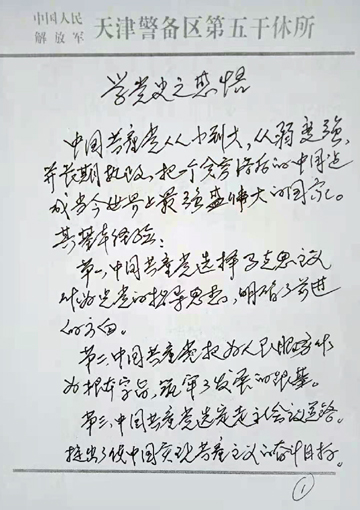 中国人民
解放军 天津警备区第五干休所
学党史之感悟
中国共产党从小到大，从弱变强，
并长期执政，把一个贫穷落后的中国造
成当今世界上最强盛伟大的国家。
其基本经验：
第一，中国共产党选择马克思主义
作为党的指导思想，明确了前进
的方向。
第二，中国共产党把为人民服务作
为根本宗旨，筑牢了发展的根基。
第三，中国共产党选定走社会主义道路，
提出了使中国实现共产主义的奋斗目标。
1